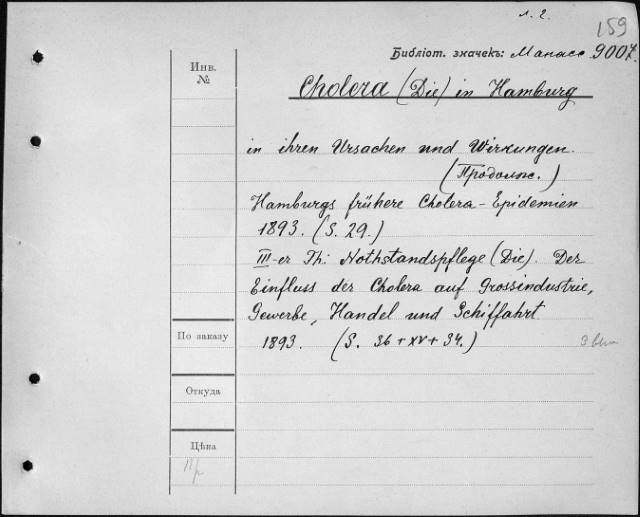 л. 2.
159
Библіот. значекъ: Манасс 9007.
Инв.
№
Cholera (Die) in Hamburg
in ihren Ursachen und Wirkungen.
(Продолж.)
Hamburgs frühere Cholera-Epidemien
1893. (S. 29.)
III-er Th: Nothstandspflege (Die). Der
Einfluss der Cholera auf Grossindustrie,
Gewerbe, Handel und Schiffahrt
1893. (S. 36 + XV + 34.)
По заказу
Откуда
Цѣна